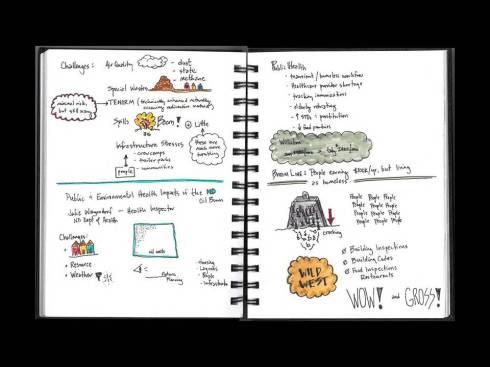 Challenges: Air Quality
- dust
- static
- methane
Special Wastes
minimal risk,
but still scary
TENORM (technically enhanced naturally
occurring radioactive material)
Spills
Boom!
Little
86
these are
much more
troubling
Infrastructure Stresses
- crew camps
- trailer parks
people - communities
Public & Environmental Health Impacts of the ND
Oil Boom
Julie Wagendorf - Health Inspector
ND Dept of Health
Challenges:
Resource
Weather
oil wells
Future
Planning
- Housing
- Logistics
- People
- Infrastructure
Public Health
- transient / homeless workforce
- Healthcare provider shortages
- tracking immunizations
- elderly relocating
- STDs + prostitution
- food parlors
Williston
Broom Line: People earning $100K/yr, but living
as homeless
cracking
People People People
People People People
People People People
People People People
Building Inspections
Building Codes
Food Inspections
Restaurants
WILD
WEST
WOW! and GROSS!